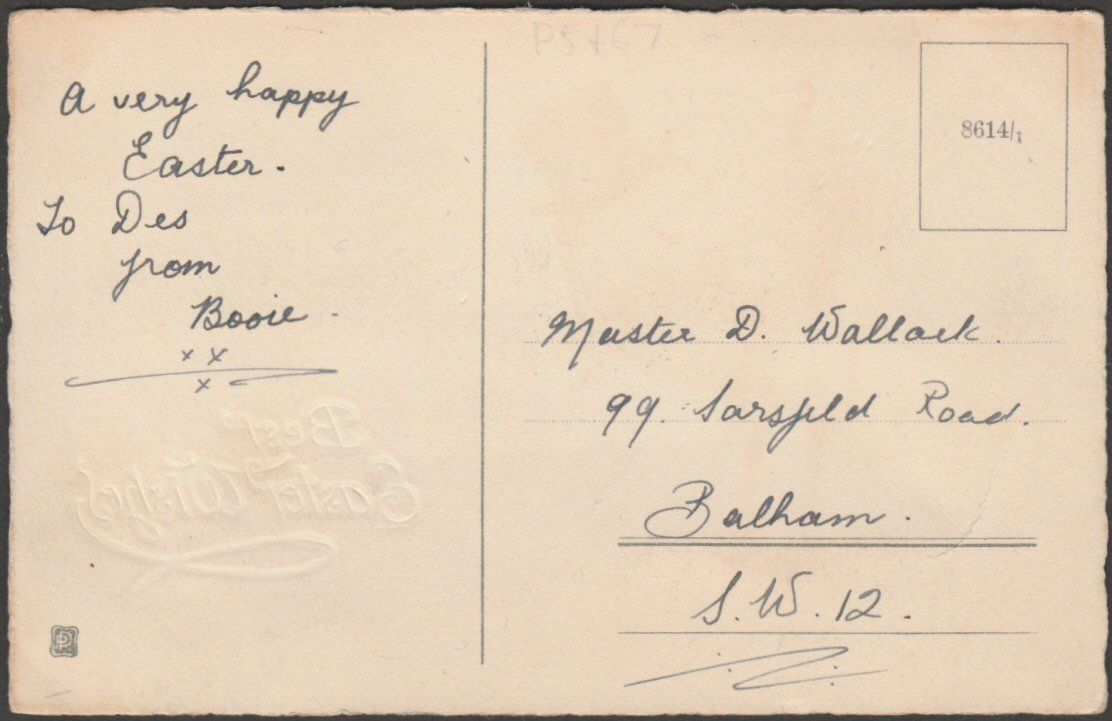 PS467
A very happy
Easter.
To Des
from
Booie.
x x
x
Best
Easter Wishes
8614/1
Master D. Wallack.
99. Sarsfeld Road.
Balham.
S.W. 12.